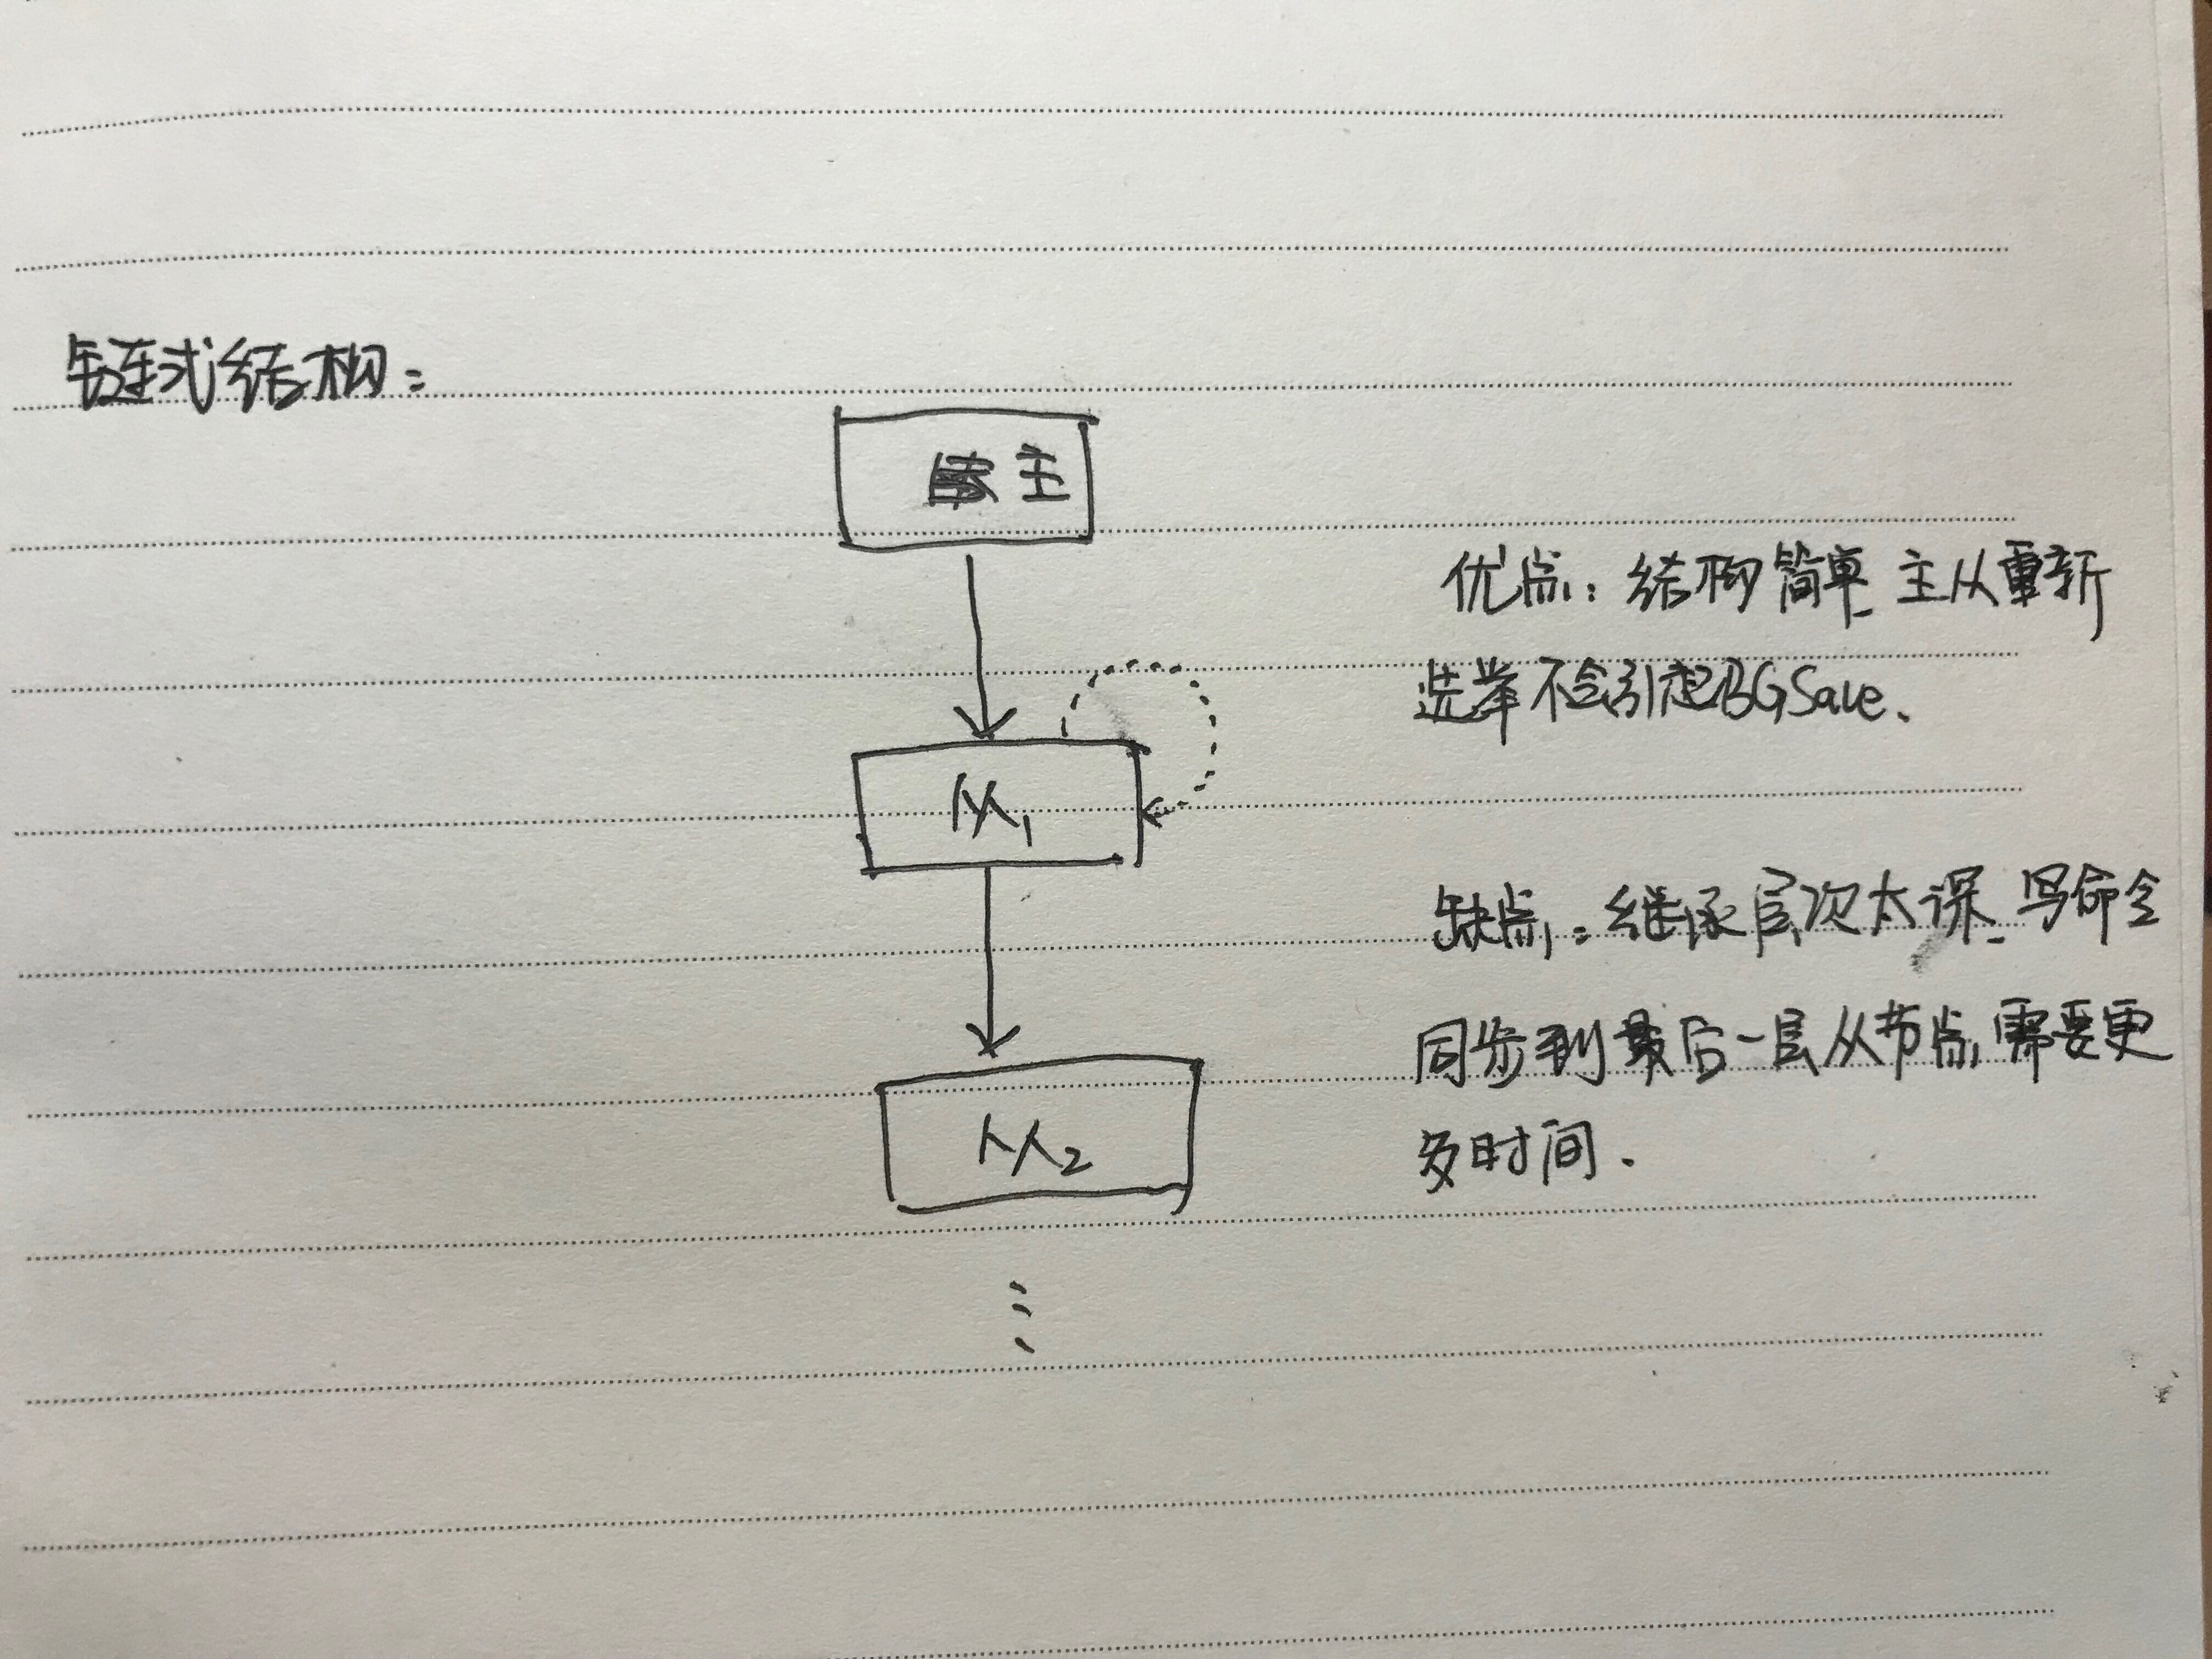 链式结构:
主
优点: 结构简单、主从重新
选举不会引起BGSave、
从1
缺点: 继承层次太深、写命令
同步到最后一层从节点需要更
多时间.
从2